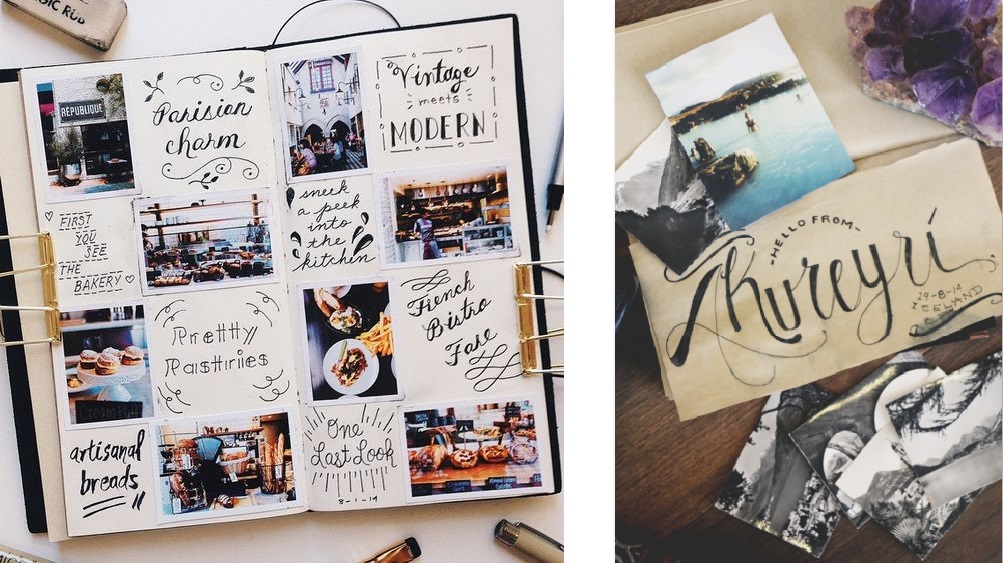 MAGIC RUB
RÉPUBLIQUE
Parisian
charm
Vintage
meets
MODERN
FIRST
YOU
SEE
THE
BAKERY
sneek
a peek
into
the
kitchen
Pretty
Pastries
French
Bistro
Fare
Cream Puff
artisanal
breads
One
Last Look
8-1-14
-HELLO FROM-
Akureyrí
19-8-14
ICELAND